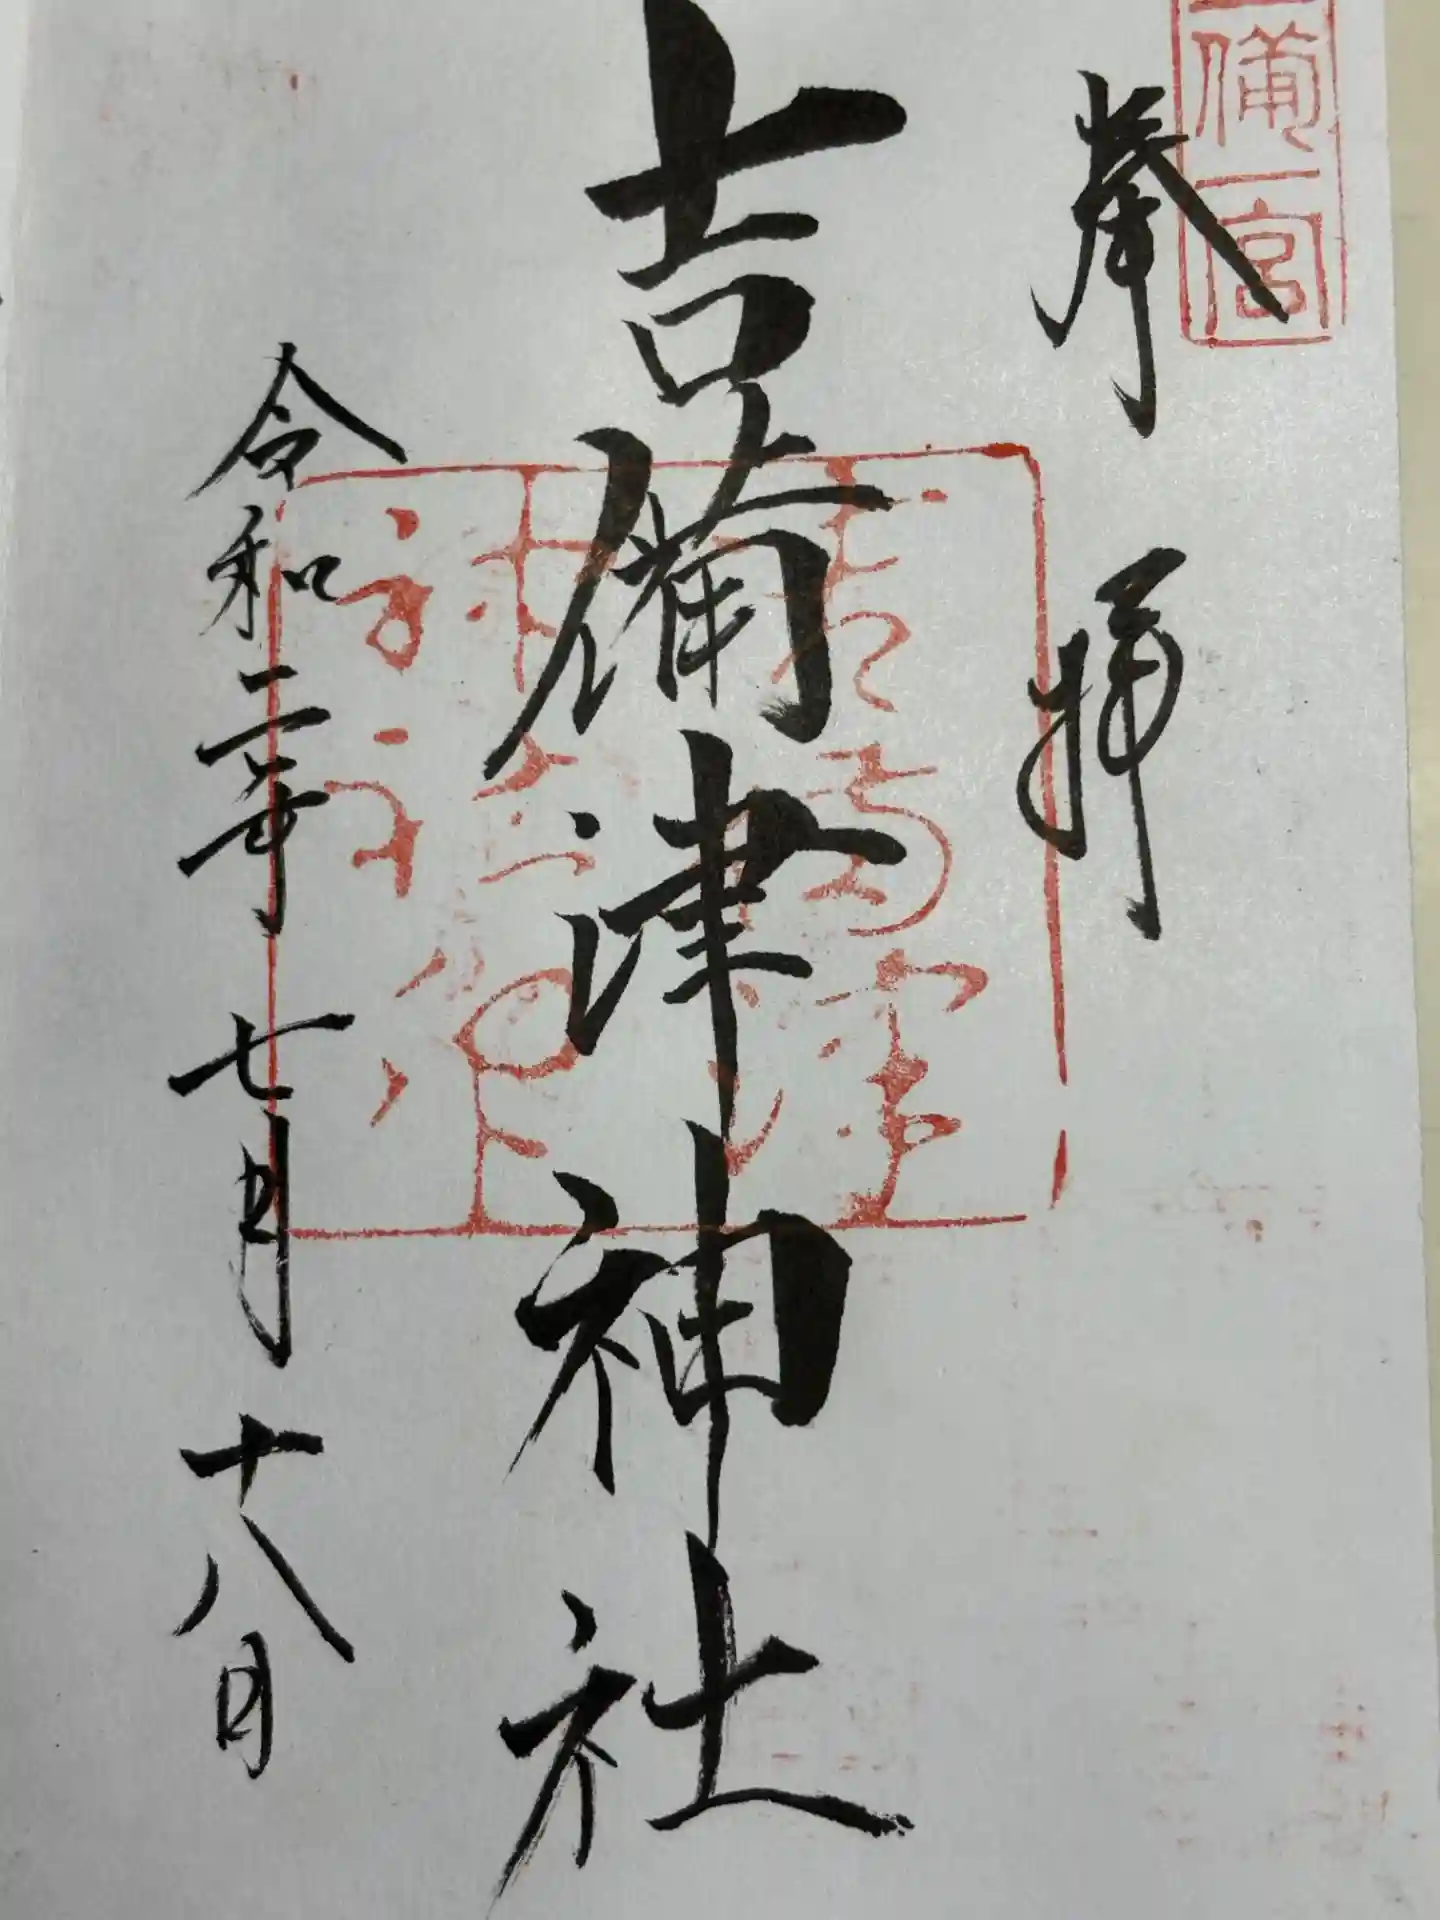 備一宮
奉拝
吉備津神社
令和二年七月十八日